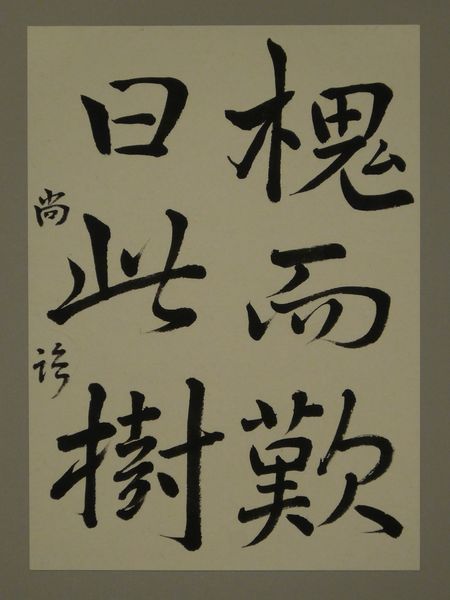 槐而歎
曰此樹
尚